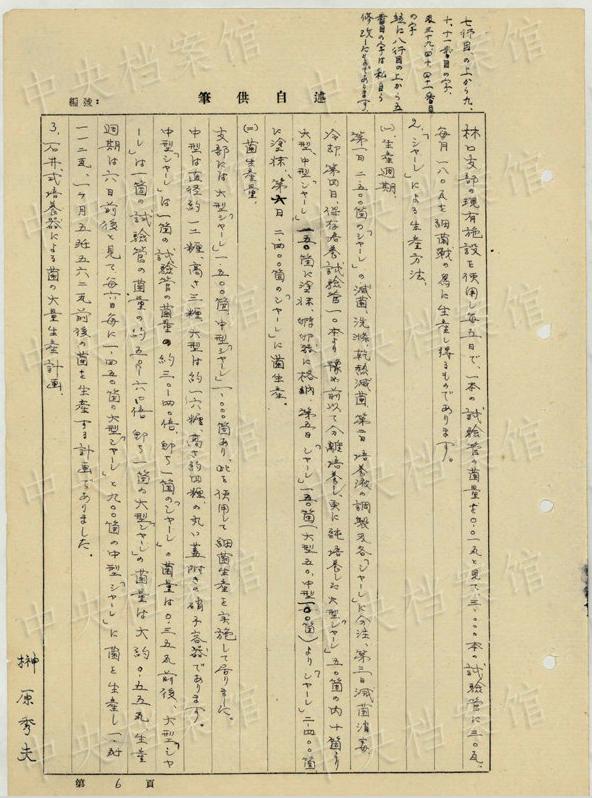 七行目の上から九、
十、十一番目の字、
及三十九、四十、四十一番目
の字
並に八行目の上から五
番目の字は私自ら
修改したのであります。
編號:
筆供自述
林口支部の現有施設を使用し毎五日で、一本の試験管の菌量を0.01瓦と見て、三、000本の試験管に三0瓦、
毎月一八0瓦を細菌戦の為に生産し得るものであります。
2.「シャーレ」による生産方法、
(一)生産週期、
第一日二、五00箇の「シャーレ」の滅菌、洗滌乾熱滅菌、第二日培養液の調製及各「シャーレ」に分注、第三日滅菌消毒
冷却、第四日、保存培養試験管一0本より予め前以て分離培養し、更に純培養した大型「シャーレ」五0箇の内十箇より
大型、中型「シャーレ」一五0箇に塗抹、孵卵器に格納、第五日「シャーレ」一五0箇(大型五0、中型一00箇)より「シャーレ」二、四00箇
に塗抹、第六日二、四00箇の「シャーレ」に菌生産。
(二)菌生産量、
支部には大型「シャーレ」一、五00箇、中型「シャーレ」一、000箇あり、此を使用して細菌生産を実施して居りました。
中型は直径約一二糎、高さ三糎、大型は約一六糎、高さ約四糎の丸い蓋附きの硝子容器であります。
中型「シャーレ」は一箇の試験管の菌量の約三0-四0倍、即ち一箇の「シャーレ」の菌量は0.三五瓦前後、大型「シャ
ーレ」は一箇の試験管の菌量の約五0-六0倍、即ち一箇の大型「シャーレ」の菌量は大約0.五五瓦、生産
週期は六日前後と見て、毎六日毎に一、四五0箇の大型「シャーレ」と九00箇の中型「シャーレ」に菌を生産し、一、
一一二瓦、一ヶ月五瓩五六二瓦前後の菌を生産する計画でありました。
3.石井式培養器による菌の大量生産計画、
榊原秀夫
第6頁
中央档案馆